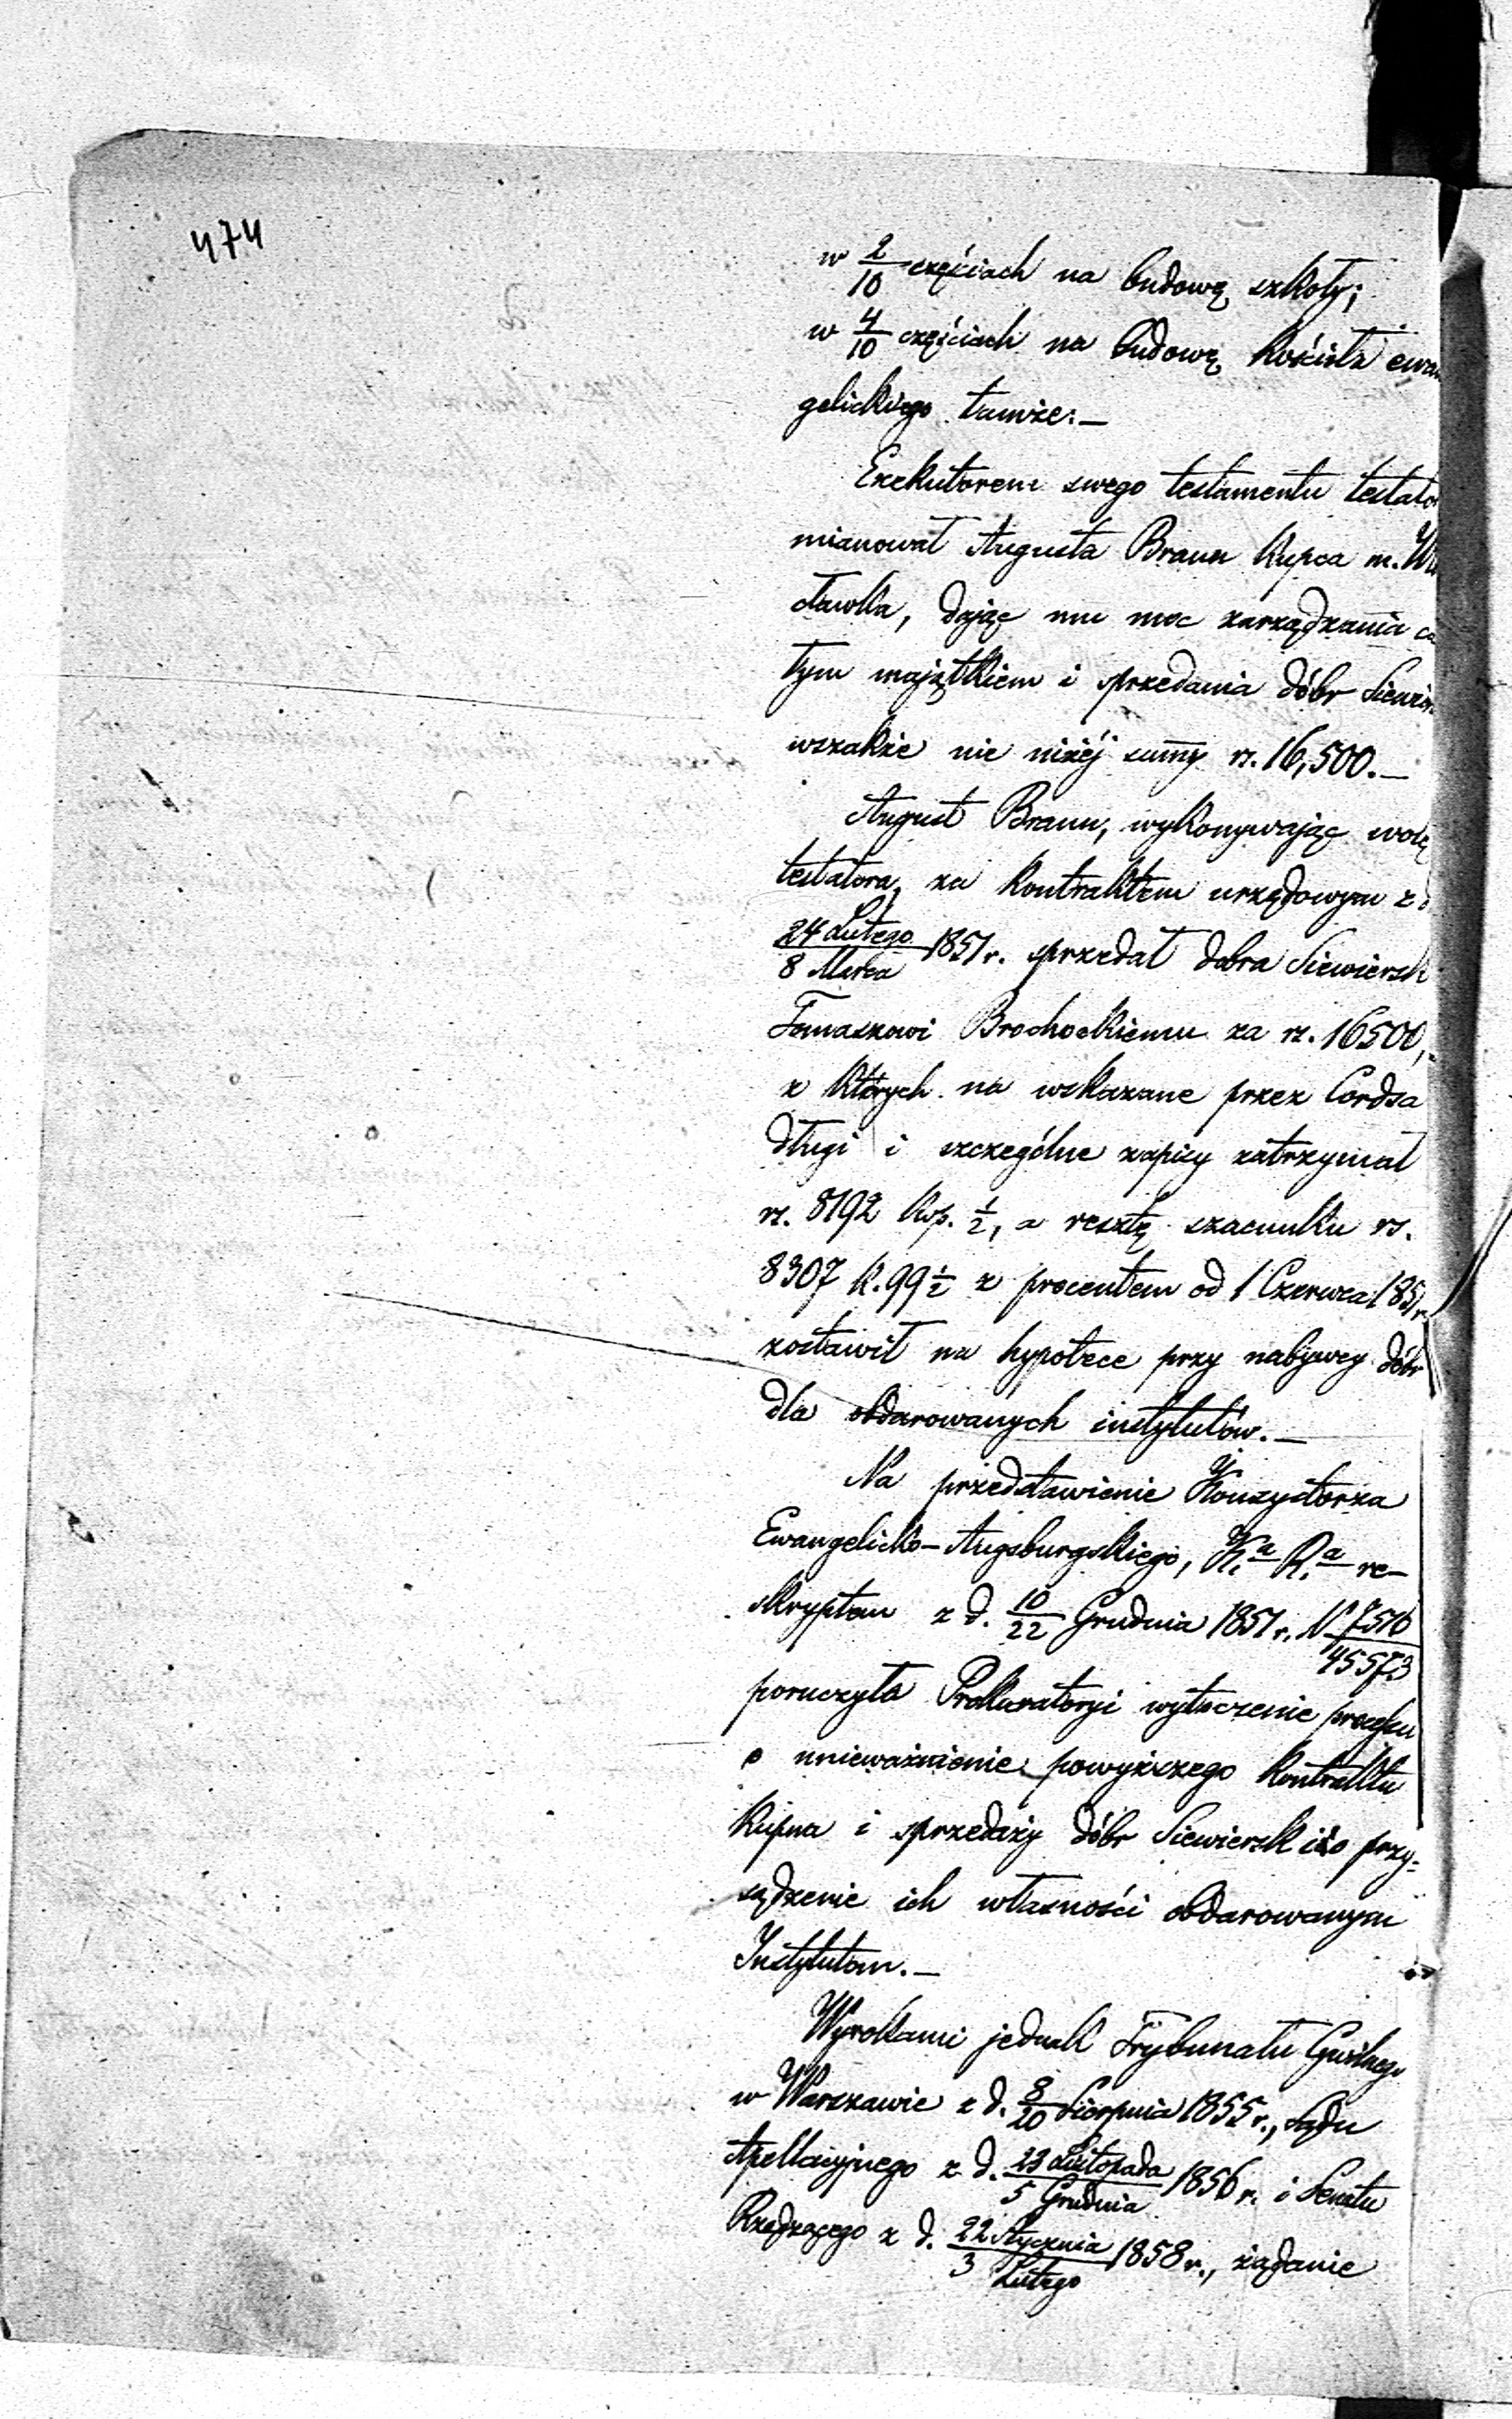 474
w 2/10 częściach na budowę szkoły;
w 4/10 częściach na budowę kościoła ewan
gelickiego tamże.—
Exekutorem swego testamentu testator
mianował Augusta Braun kupca m. Wło
cławka, dając mu moc zarządzania ca
łym majątkiem i sprzedania dóbr Siewier
wszakże nie niżéj summy rs. 16,500.—
August Braun, wykonywając wolę
testatora, za kontraktem urzędowym z d
24 Lutego/8 Marca 1851 r. sprzedał dobra Siewiersk
Tomaszowi Brochockiemu za rs. 16500,
z których na wskazane przez Cordsa
długi i szczególne zapisy zatrzymał
rs. 8192 kop. 1/2, a resztę szacunku rs.
8307 k. 99 1/2 z procentem od 1 Czerwca 1851 r.
zostawił na hypotece przy nabywcy dóbr
dla obdarowanych instytutów.—
Na przedstawienie Konsystorza
Ewangelicko-Augsburgskiego, K.a R.a re-
skryptem z d. 10/22 Grudnia 1851 r. N 7516/45573
poruczyła Prokuratoryi wytoczenie processu
o unieważnienie powyższego kontraktu
kupna i sprzedaży dóbr Siewiersk i o przy-
sądzenie ich własności obdarowanym
Instytutom.—
Wyrokami jednak Trybunału Cywilnego
w Warszawie z d. 8/20 Sierpnia 1855 r., Sądu
Apellacyjnego z d. 23 Listopada/5 Grudnia 1856 r. i Senatu
Rządzącego z d. 22 Stycznia/3 Lutego 1858 r., żądanie